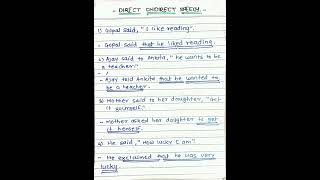 - DIRECT INDIRECT SPEECH -
1) Gopal said, "I like reading".
- Gopal said that he liked reading.
2) Ajay said to Ankita, "he wants to be
a teacher".
- Ajay told Ankita that he wanted to
be a teacher.
3) Mother said to her daughter, "Get
it yourself."
- mother asked her daughter to get
it herself.
4) He said, "How lucky I am"
- He exclaimed that he was very
lucky.